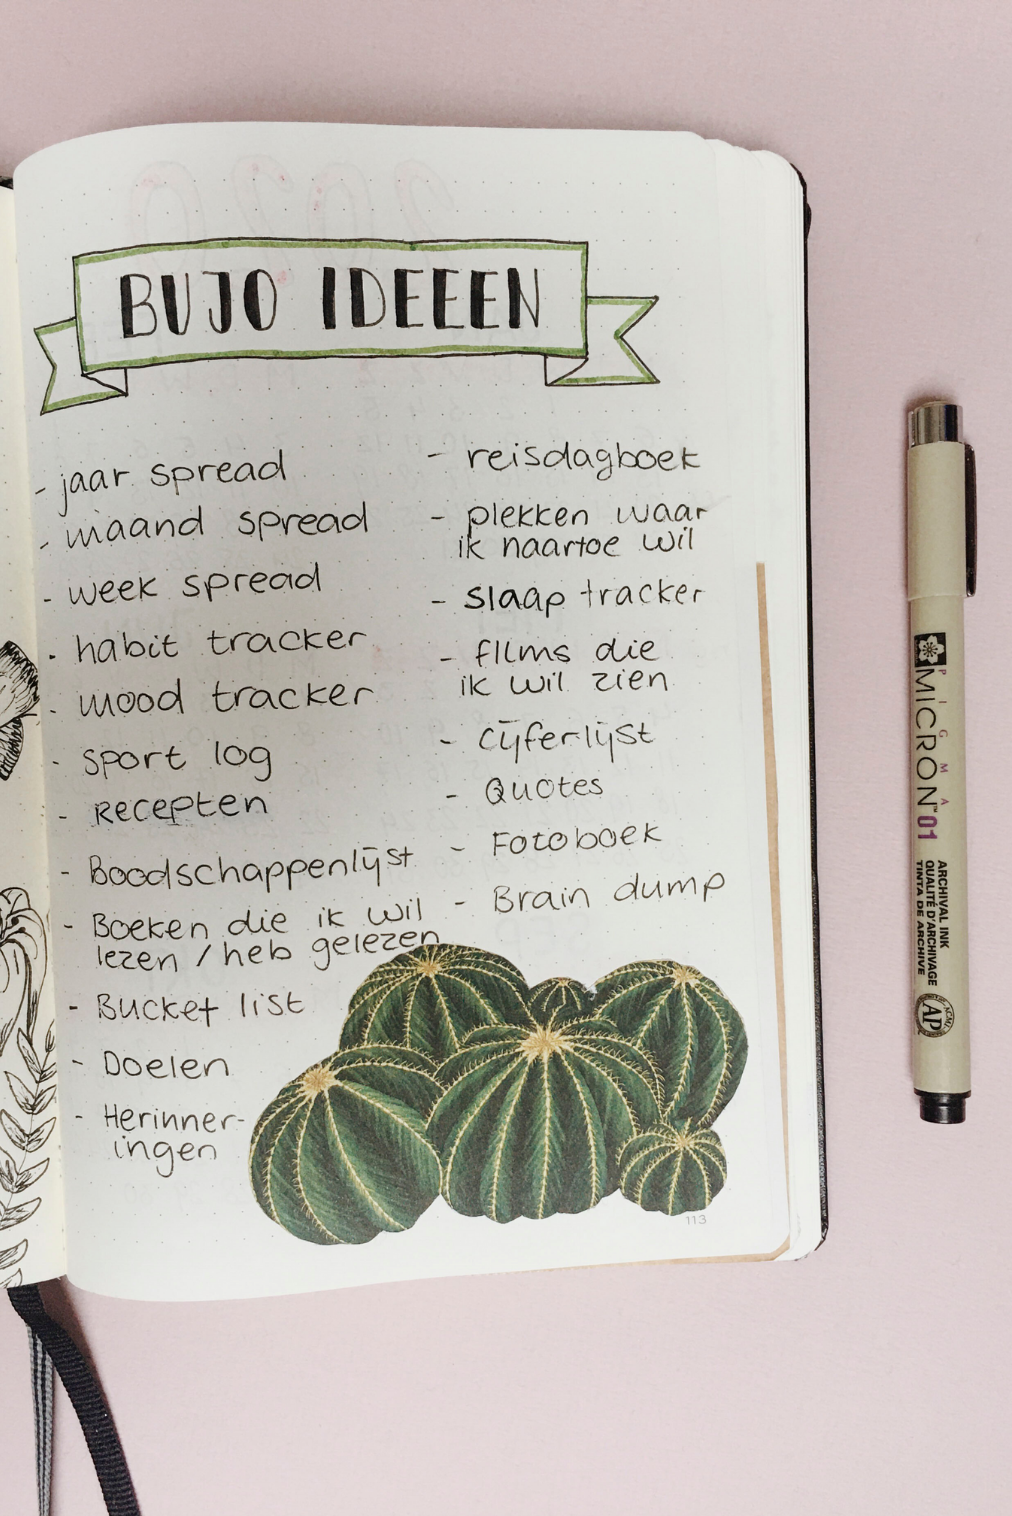 BUJO IDEEEN
- jaar spread
- maand spread
- week spread
- habit tracker
- mood tracker
- sport log
- Recepten
- Boodschappenlijst
- Boeken die ik wil
lezen / heb gelezen
- Bucket list
- Doelen
- Herinner-
ingen
- reisdagboek
- plekken waar
ik naartoe wil
- slaap tracker
- films die
ik wil zien
- cijferlijst
- Quotes
- Fotoboek
- Brain dump
113
PIGMA
MICRON™ 01
ARCHIVAL INK
QUALITÉ D'ARCHIVAGE
TINTA DE ARCHIVE
AP